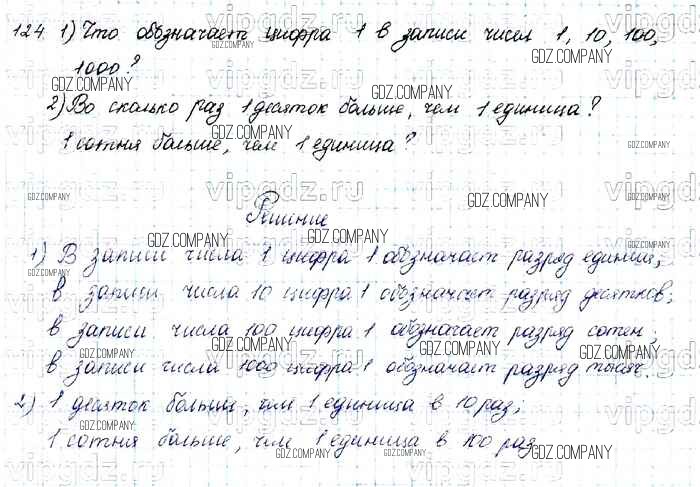 124 1) Что обозначает цифра 1 в записи чисел 1, 10, 100,
1000?
2) Во сколько раз 1 десяток больше, чем 1 единица?
1 сотня больше, чем 1 единица?
Решение
1) В записи числа 1 цифра 1 обозначает разряд единиц;
в записи числа 10 цифра 1 обозначает разряд десятков;
в записи числа 100 цифра 1 обозначает разряд сотен;
в записи числа 1000 цифра 1 обозначает разряд тысяч.
2) 1 десяток больше, чем 1 единица в 10 раз;
1 сотня больше, чем 1 единица в 100 раз
GDZ.COMPANY
vipgdz.ru